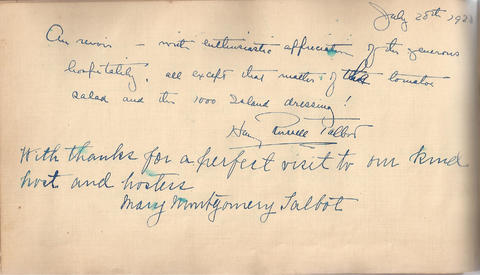 July 28th, 192
Au revoir — with enthusiastic appreciation of the generous
hospitality, all except that matter of the tomato
salad and the 1000 Island dressing!
Harry Talbot
With thanks for a perfect visit to our kind
host and hostess
Mary Montgomery Talbot